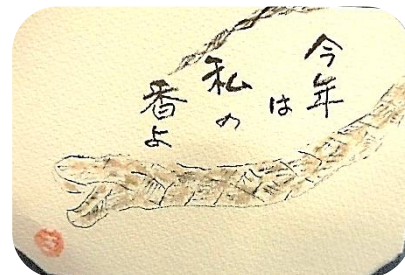 今年
は
私の
番よ